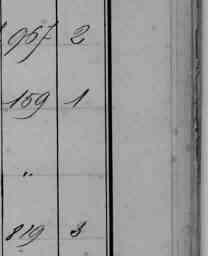 957 2
159 1
"
819 3